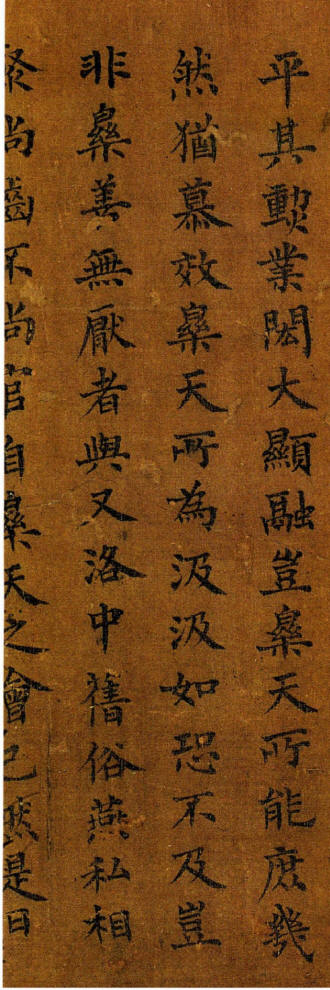 平其勳業閎大顯融豈樂天所能庶幾
然猶慕效樂天所為汲汲如恐不及豈
非樂善無厭者與又洛中舊俗燕私相
聚尚齒不尚官自樂天之會已然是日